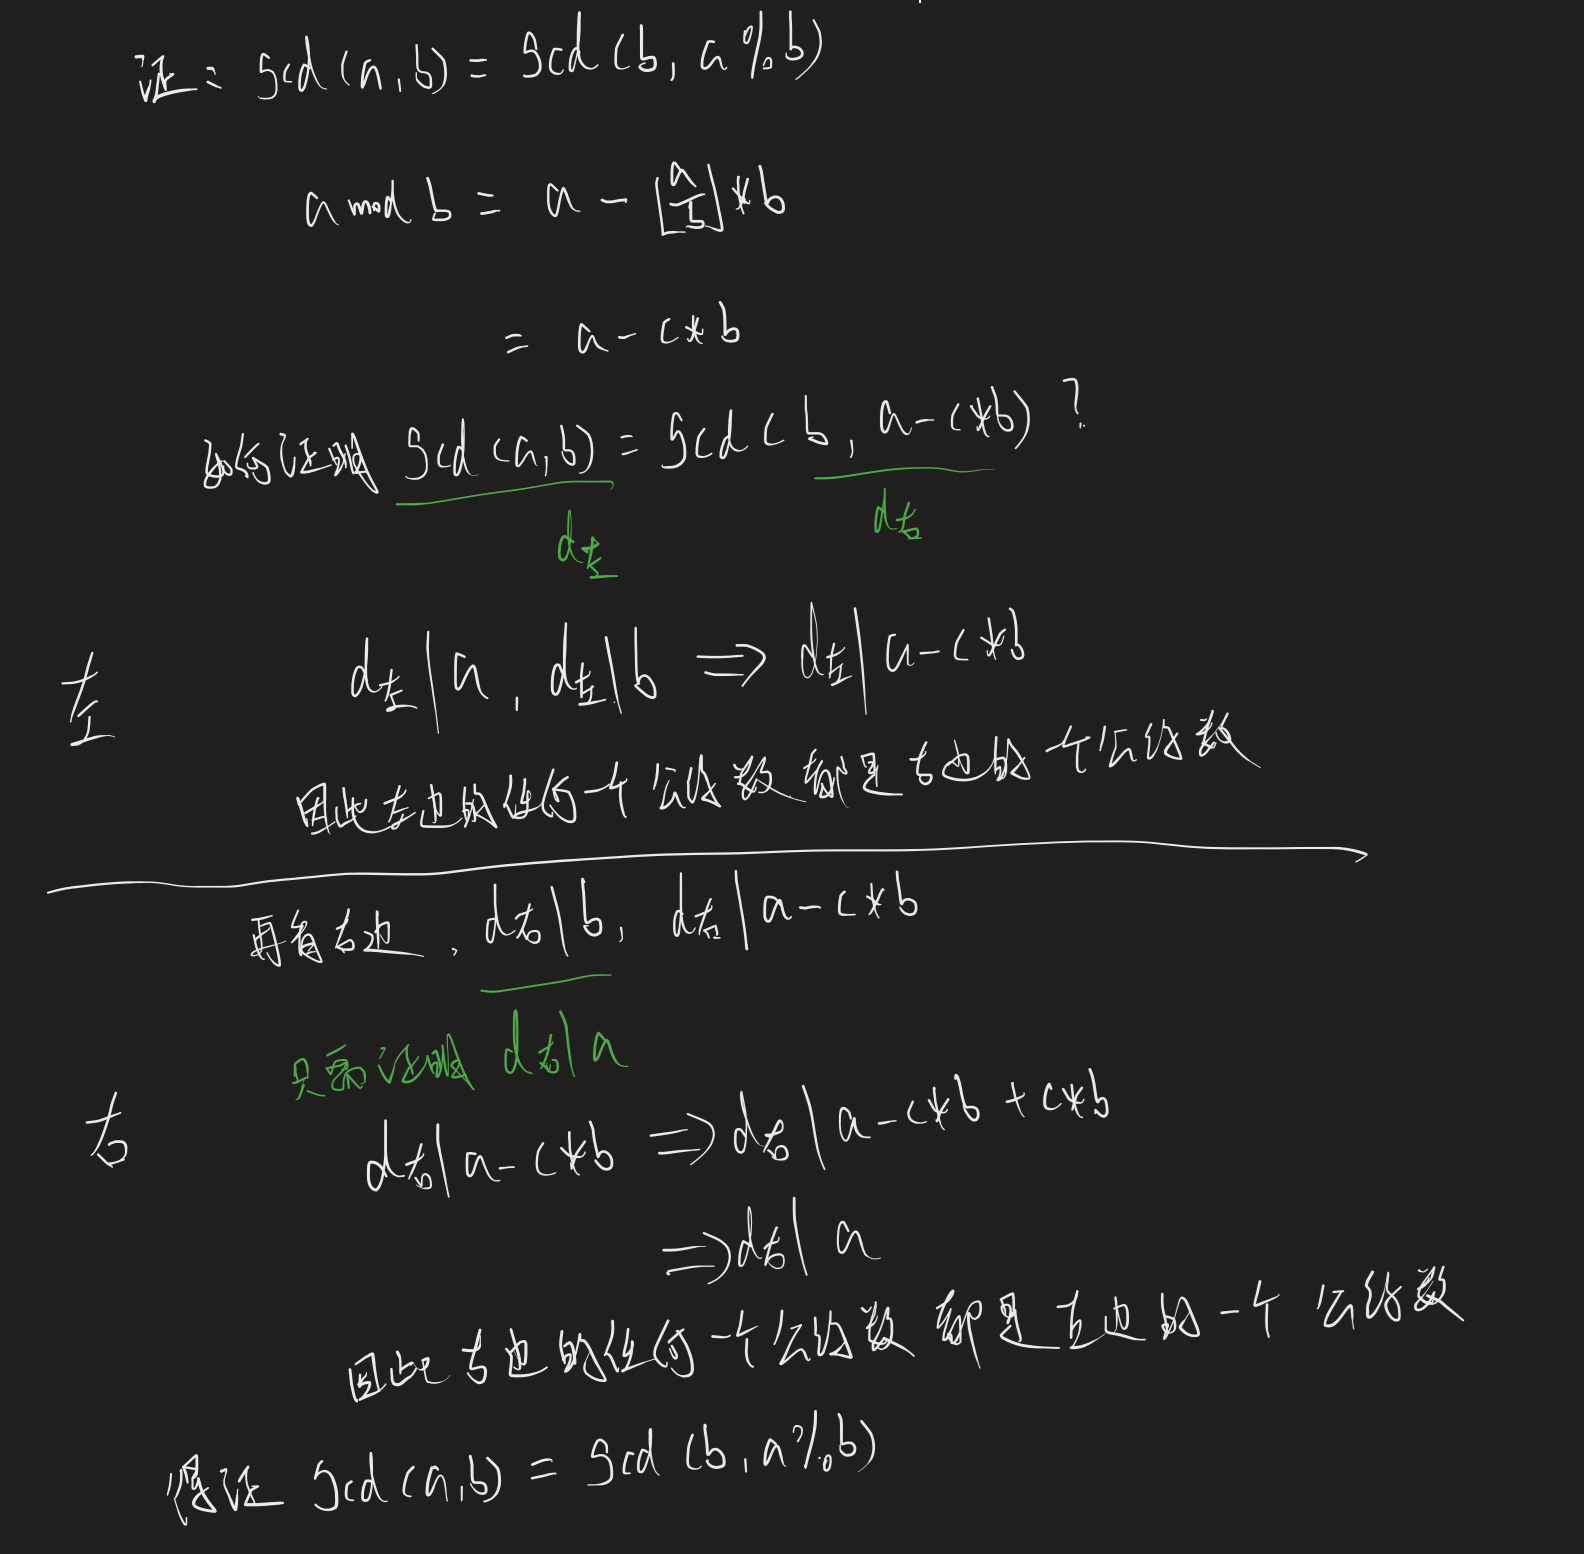 证: gcd(a,b) = gcd(b, a%b)
a mod b = a - ⌊a/b⌋*b
= a - c*b
如何证明 gcd(a,b) = gcd(b, a-c*b)?
d左 d右
左 d左|a, d左|b ⇒ d左|a-c*b
因此左边的任何一个公约数都是右边的一个公约数
再看右边, d右|b, d右|a-c*b
只需证明 d右|a
右 d右|a-c*b ⇒ d右|a-c*b+c*b
⇒ d右|a
因此右边的任何一个公约数都是左边的一个公约数
得证 gcd(a,b) = gcd(b, a%b)